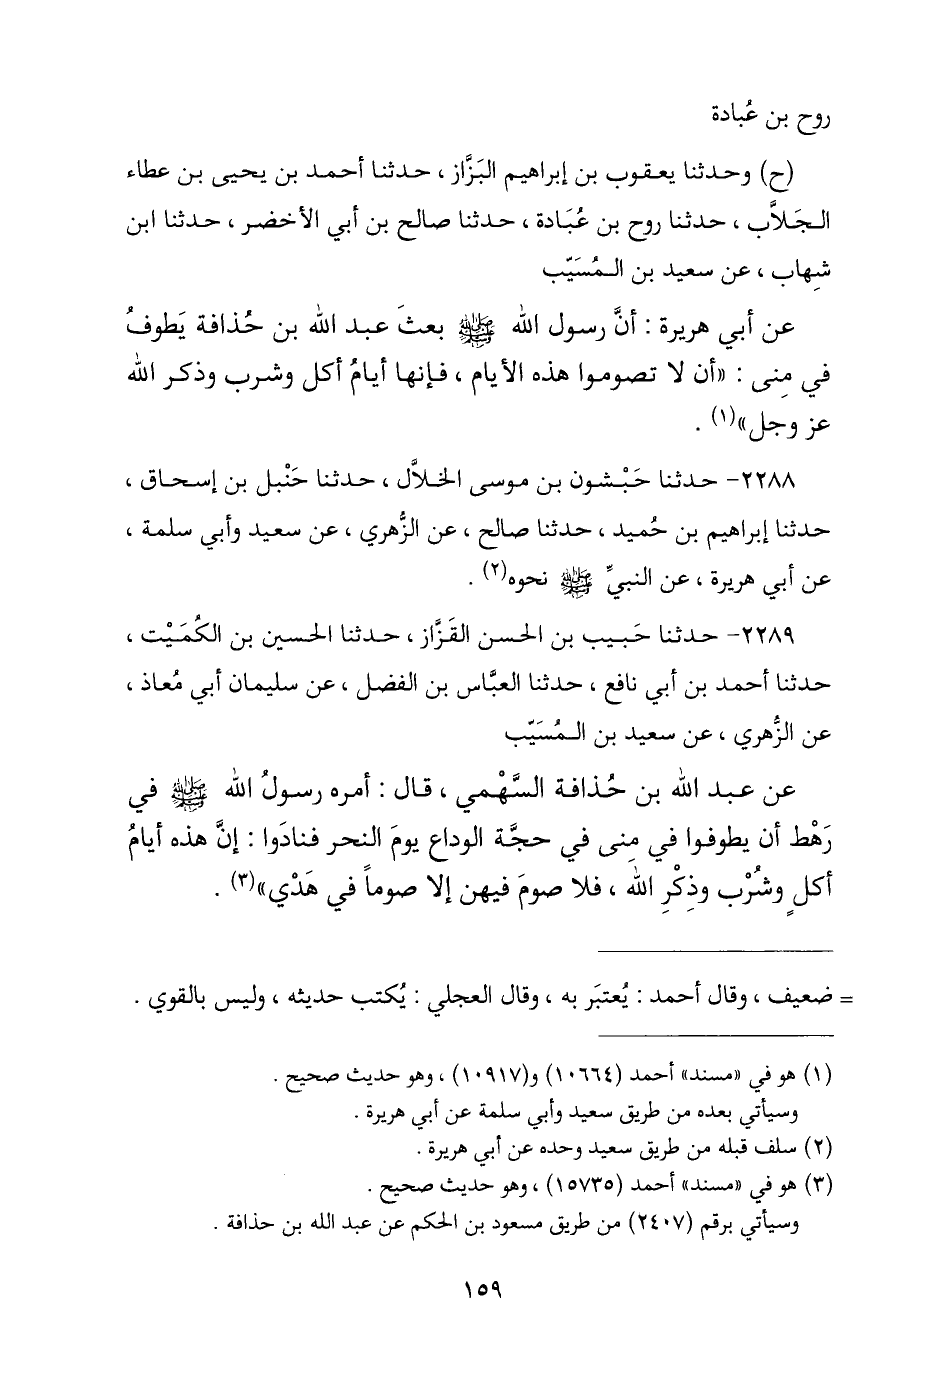 روح بن عُبادة
(ح) وحدثنا يعقوب بن إبراهيم البَزَّاز ، حدثنا أحمد بن يحيى بن عطاء
الجَلاَّب ، حدثنا روح بن عُبَادة ، حدثنا صالح بن أبي الأخضر ، حدثنا ابن
شِهاب ، عن سعيد بن المُسَيّب
عن أبي هريرة : أنَّ رسول الله ﷺ بعثَ عبد الله بن حُذافة يَطوفُ
في مِنى : «أن لا تصوموا هذه الأيام ، فإنها أيامُ أكل وشرب وذكر الله
عز وجل»(١) .
٢٢٨٨- حدثنا حَبْشون بن موسى الخلاَّل ، حدثنا حَنْبل بن إسحاق ،
حدثنا إبراهيم بن حُميد ، حدثنا صالح ، عن الزُّهري ، عن سعيد وأبي سلمة ،
عن أبي هريرة ، عن النبيِّ ﷺ نحوه(٢) .
٢٢٨٩- حدثنا حَبيب بن الحسن القَزَّاز ، حدثنا الحسين بن الكُمَيْت ،
حدثنا أحمد بن أبي نافع ، حدثنا العبَّاس بن الفضل ، عن سليمان أبي مُعاذ ،
عن الزُّهري ، عن سعيد بن المُسَيّب
عن عبد الله بن حُذافة السَّهْمي ، قال : أمره رسولُ الله ﷺ في
رَهْط أن يطوفوا في مِنى في حجَّة الوداع يومَ النحر فنادَوا : إنَّ هذه أيامُ
أكلٍ وشُرْبٍ وذِكْرِ اللهِ ، فلا صومَ فيهن إلا صوماً في هَدْي»(٣) .
= ضعيف ، وقال أحمد : يُعتبَر به ، وقال العجلي : يُكتب حديثه ، وليس بالقوي .
(١) هو في «مسند» أحمد (١٠٦٦٤) و(١٠٩١٧) ، وهو حديث صحيح .
وسيأتي بعده من طريق سعيد وأبي سلمة عن أبي هريرة .
(٢) سلف قبله من طريق سعيد وحده عن أبي هريرة .
(٣) هو في «مسند» أحمد (١٥٧٣٥) ، وهو حديث صحيح .
وسيأتي برقم (٢٤٠٧) من طريق مسعود بن الحكم عن عبد الله بن حذافة .
١٥٩